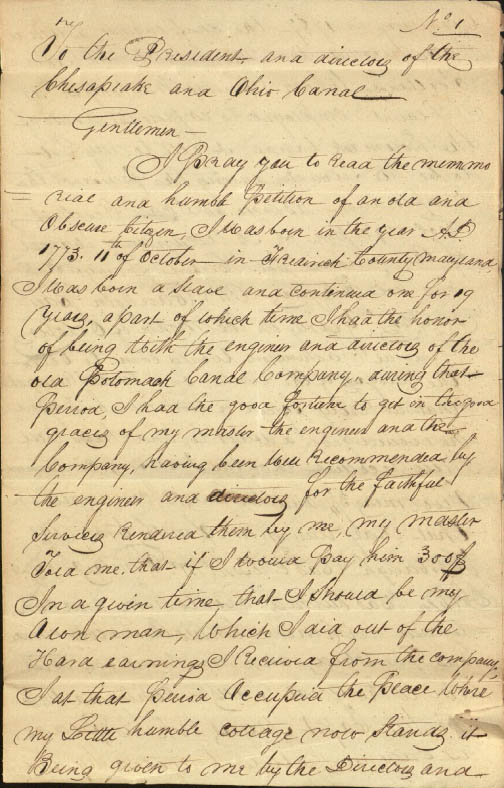 No 1
To the President and directors of the
Chesapeake and Ohio Canal
Gentlemen —
I Pray you to Read the memmo
= rial and humble Petition of an old and
Obscure Citizen, I Was born in the year AD
1773. 11th of October — in Frederick County Maryland
I Was born a Slave and continued one for 19
Years, a part of which time I had the honor
of being With the engineer and directors of the
old Potomack Canal Company, during that
Period, I had the good fortune to get in the good
graces of my master the engineer and the
Company, having been Well Recommended by
the engineer and directors for the faithful
Services Rendered them by me, my master
Told me, that if I Would Pay him 300$
In a given time, that I Should be my
Own man, Which I did out of the
Hard earnings I Received from the company,
I at that Period Occupied the Place Where
my Little humble cottage now Stands it
Being given to me by the Directors and